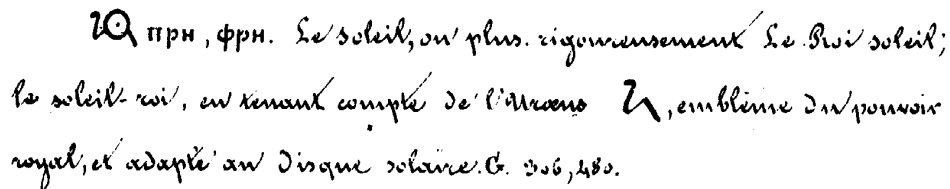 πρη, φρη. Le soleil, ou plus rigoureusement Le Roi soleil;
le soleil-roi, en tenant compte de l'Uraeus, emblême du pouvoir
royal, et adapté au disque solaire. G. 306, 480.